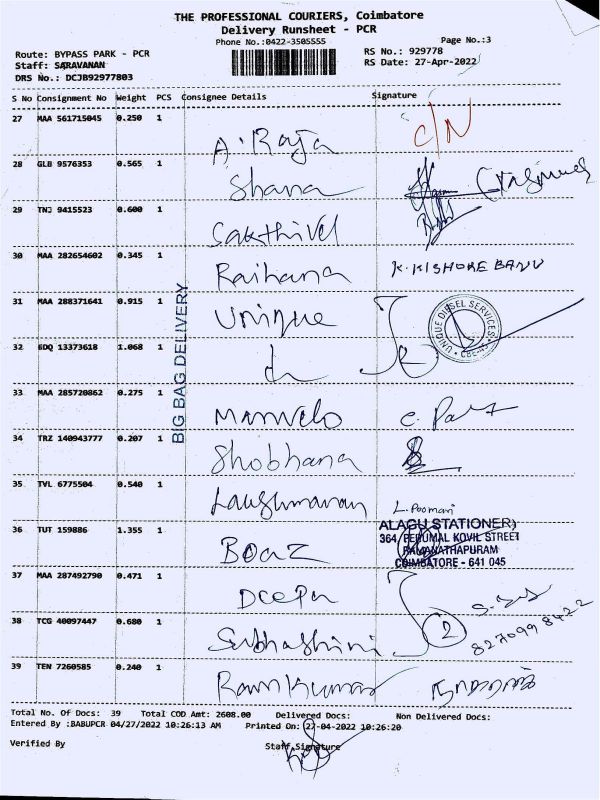 THE PROFESSIONAL COURIERS, Coimbatore
Delivery Runsheet - PCR
Phone No.:0422-3505555
Page No.:3
Route: BYPASS PARK - PCR
RS No.: 929778
Staff: SARAVANAN
RS Date: 27-Apr-2022
DRS No.: DCJB92977803
S No Consignment No Weight PCS Consignee Details Signature
27 MAA 561715045 0.250 1 A. Raja C/N
28 GLB 9576353 0.565 1 Shana
29 TNJ 9415523 0.600 1 Sakthivel
30 MAA 282654602 0.345 1 Raihana K. KISHORE BANU
31 MAA 288371641 0.915 1 Unique
UNIQUE DIESEL SERVICES
32 EDQ 13373618 1.068 1
BIG BAG DELIVERY
33 MAA 285720862 0.275 1
34 TRZ 140943777 0.207 1 Shobhana
35 TVL 6775504 0.540 1 L. Poomari
36 TUT 159886 1.355 1 Boaz
ALAGU STATIONERY
364, PERUMAL KOVIL STREET
RAMANATHAPURAM
COIMBATORE - 641 045
37 MAA 287492790 0.471 1 Deepa
38 TCG 40097447 0.680 1 Subhashini 2 8270998422
39 TEN 7260585 0.240 1 Ram Kumar
Total No. Of Docs: 39 Total COD Amt: 2608.00 Delivered Docs: Non Delivered Docs:
Entered By :BABUPCR 04/27/2022 10:26:13 AM Printed On: 27-04-2022 10:26:20
Verified By Staff Signature